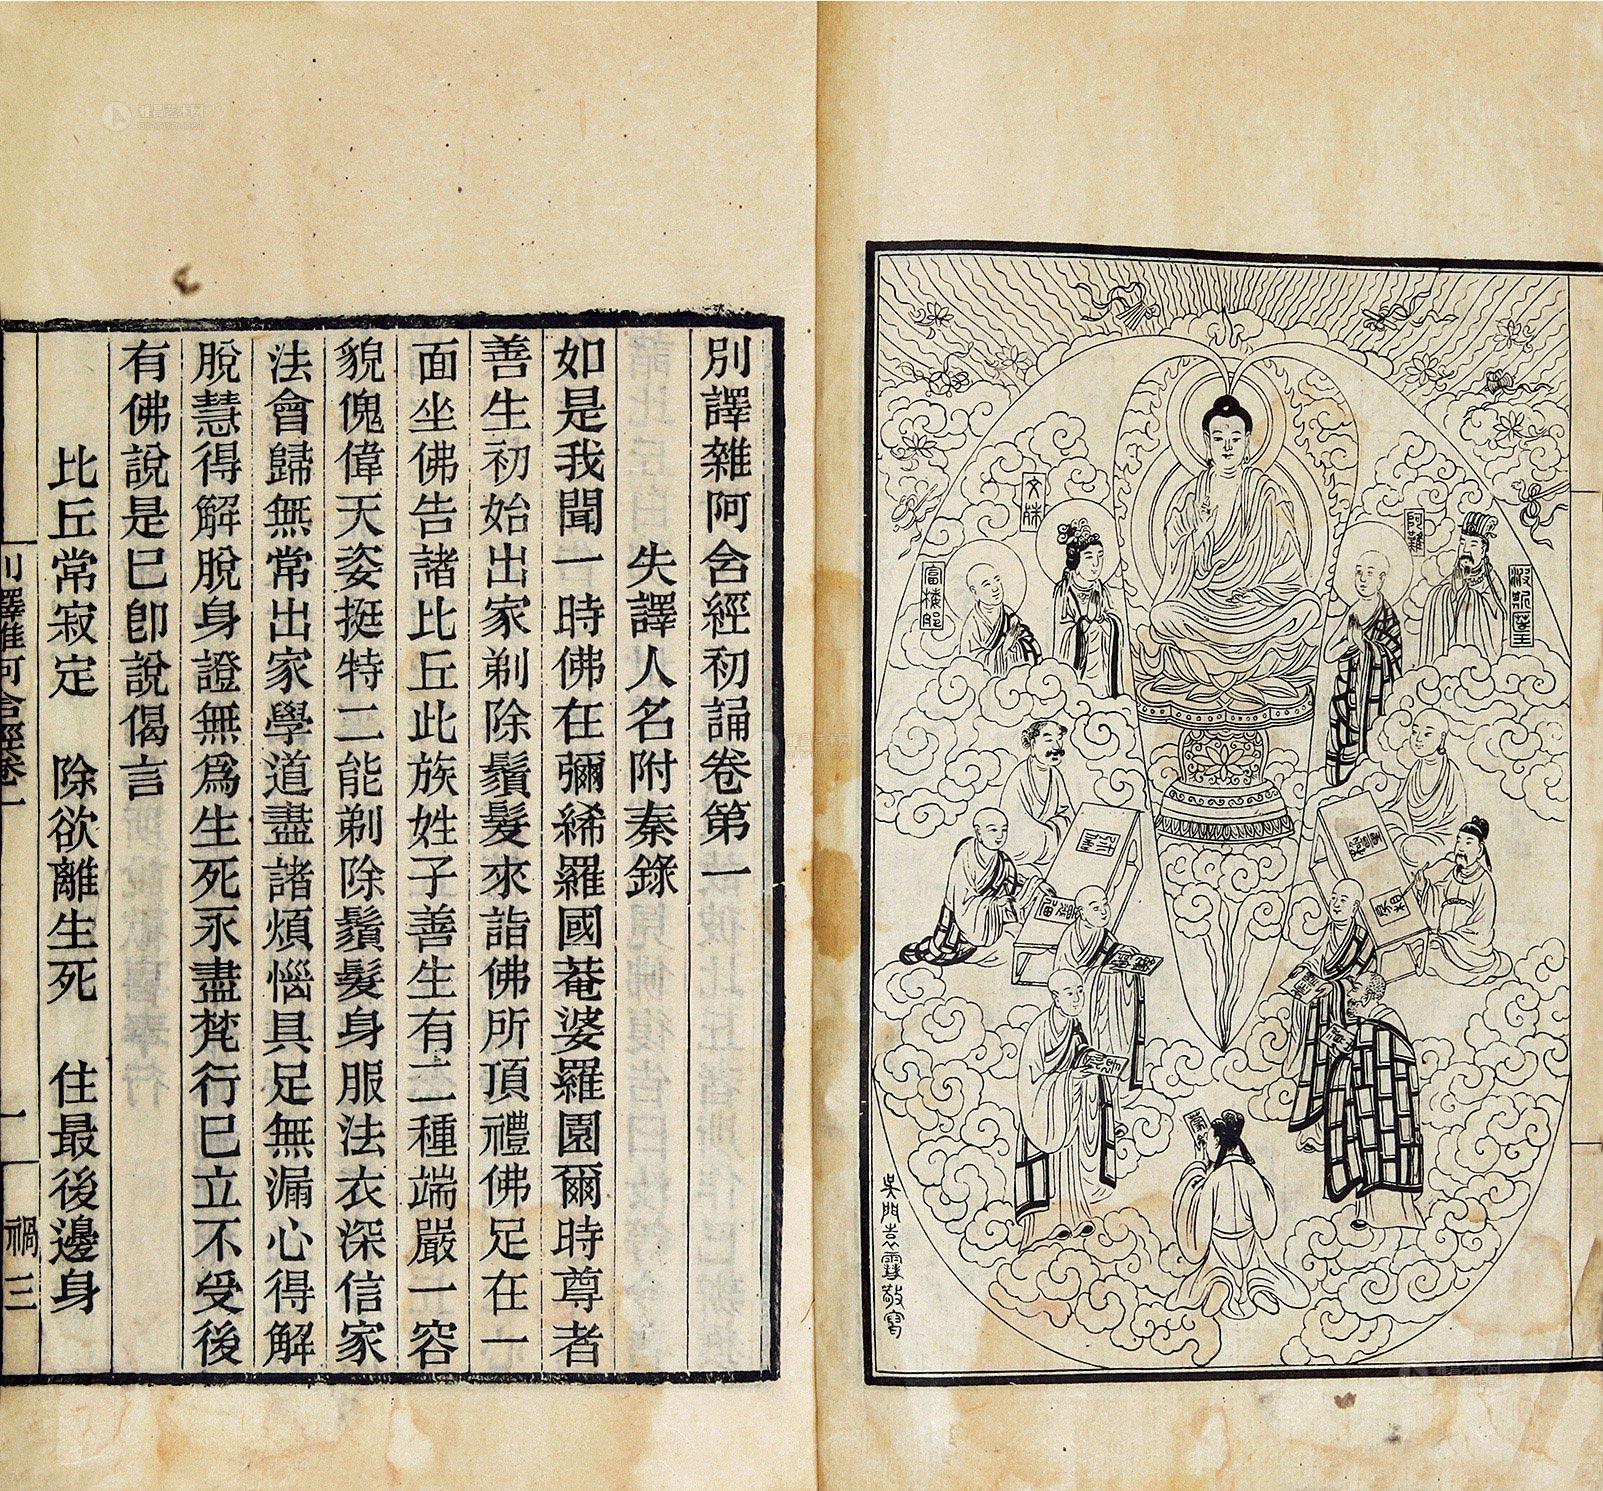 文殊
富楼那
阿難
波斯匿王
吳門袁雲敬寫
別譯雜阿含經初誦卷第一
失譯人名附秦錄
如是我聞一時佛在彌絺羅國菴婆羅園爾時尊者
善生初始出家剃除鬚髮來詣佛所頂禮佛足在一
面坐佛告諸比丘此族姓子善生有二種端嚴一容
貌傀偉天姿挺特二能剃除鬚髮身服法衣深信家
法會歸無常出家學道盡諸煩惱具足無漏心得解
脫慧得解脫身證無為生死永盡梵行已立不受後
有佛說是已即說偈言
比丘常寂定　除欲離生死　住最後邊身
別譯雜阿含經卷一
一
禍三